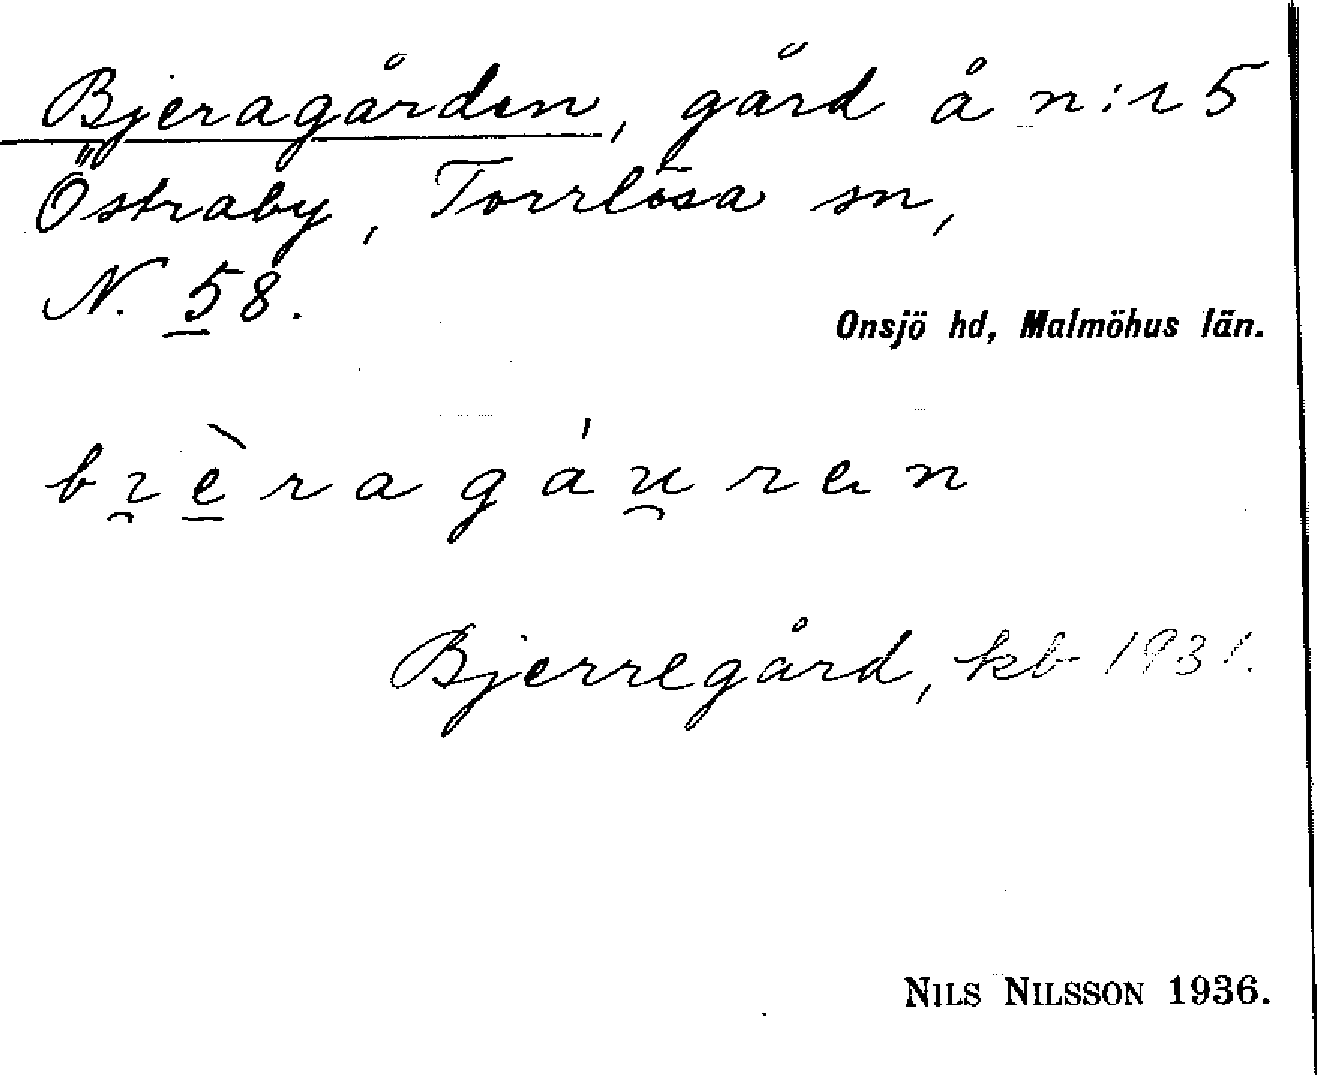 Bjeragården, gård å n:r 5
Östraby, Torrlösa sn,
N. 58.
Onsjö hd, Malmöhus län.
bi̯èragáu̯ren
Bjerregård, kb 1931.
NILS NILSSON 1936.